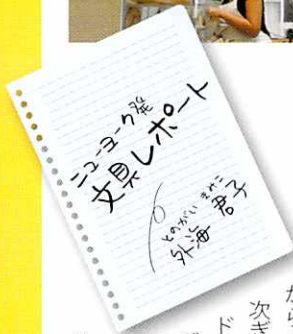 ニューヨーク発
文具レポート
とのがい きみこ
外海 君子
から
次ぎ
ド